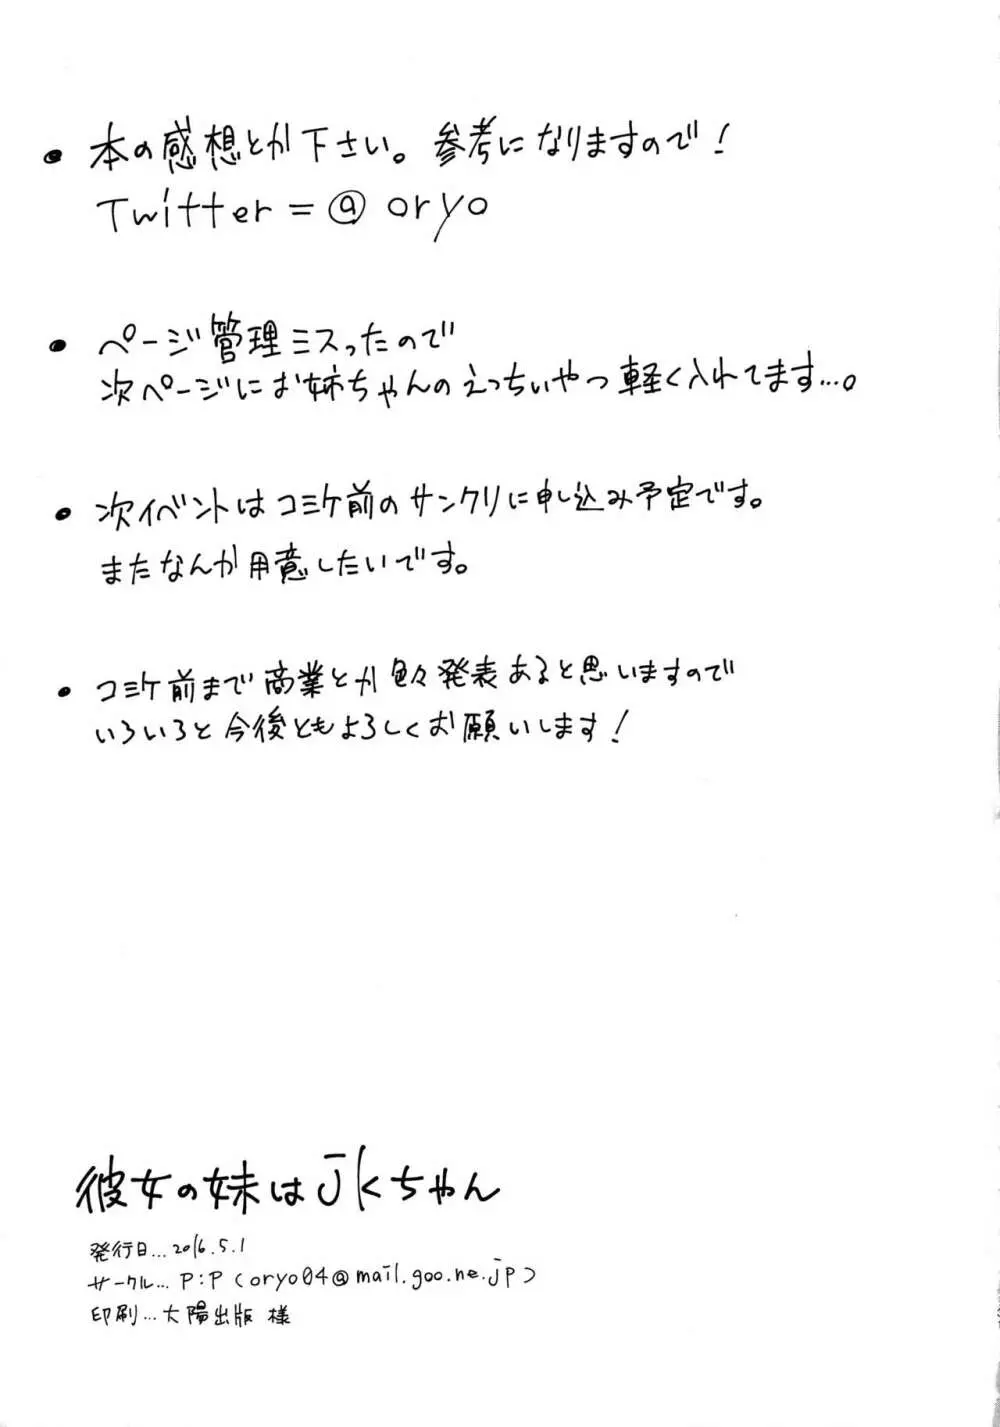 ● 本の感想とか下さい。参考になりますので！
Twitter = @ oryo
● ページ管理ミスったので
次ページにお姉ちゃんのえっちいやつ軽く入れてます...。
● 次イベントはコミケ前のサンクリに申し込み予定です。
またなんか用意したいです。
● コミケ前まで商業とか色々発表あると思いますので
いろいろと今後ともよろしくお願いします！
彼女の妹はJKちゃん
発行日...2016.5.1
サークル... P:P (oryo04@mail.goo.ne.jp)
印刷...大陽出版 様